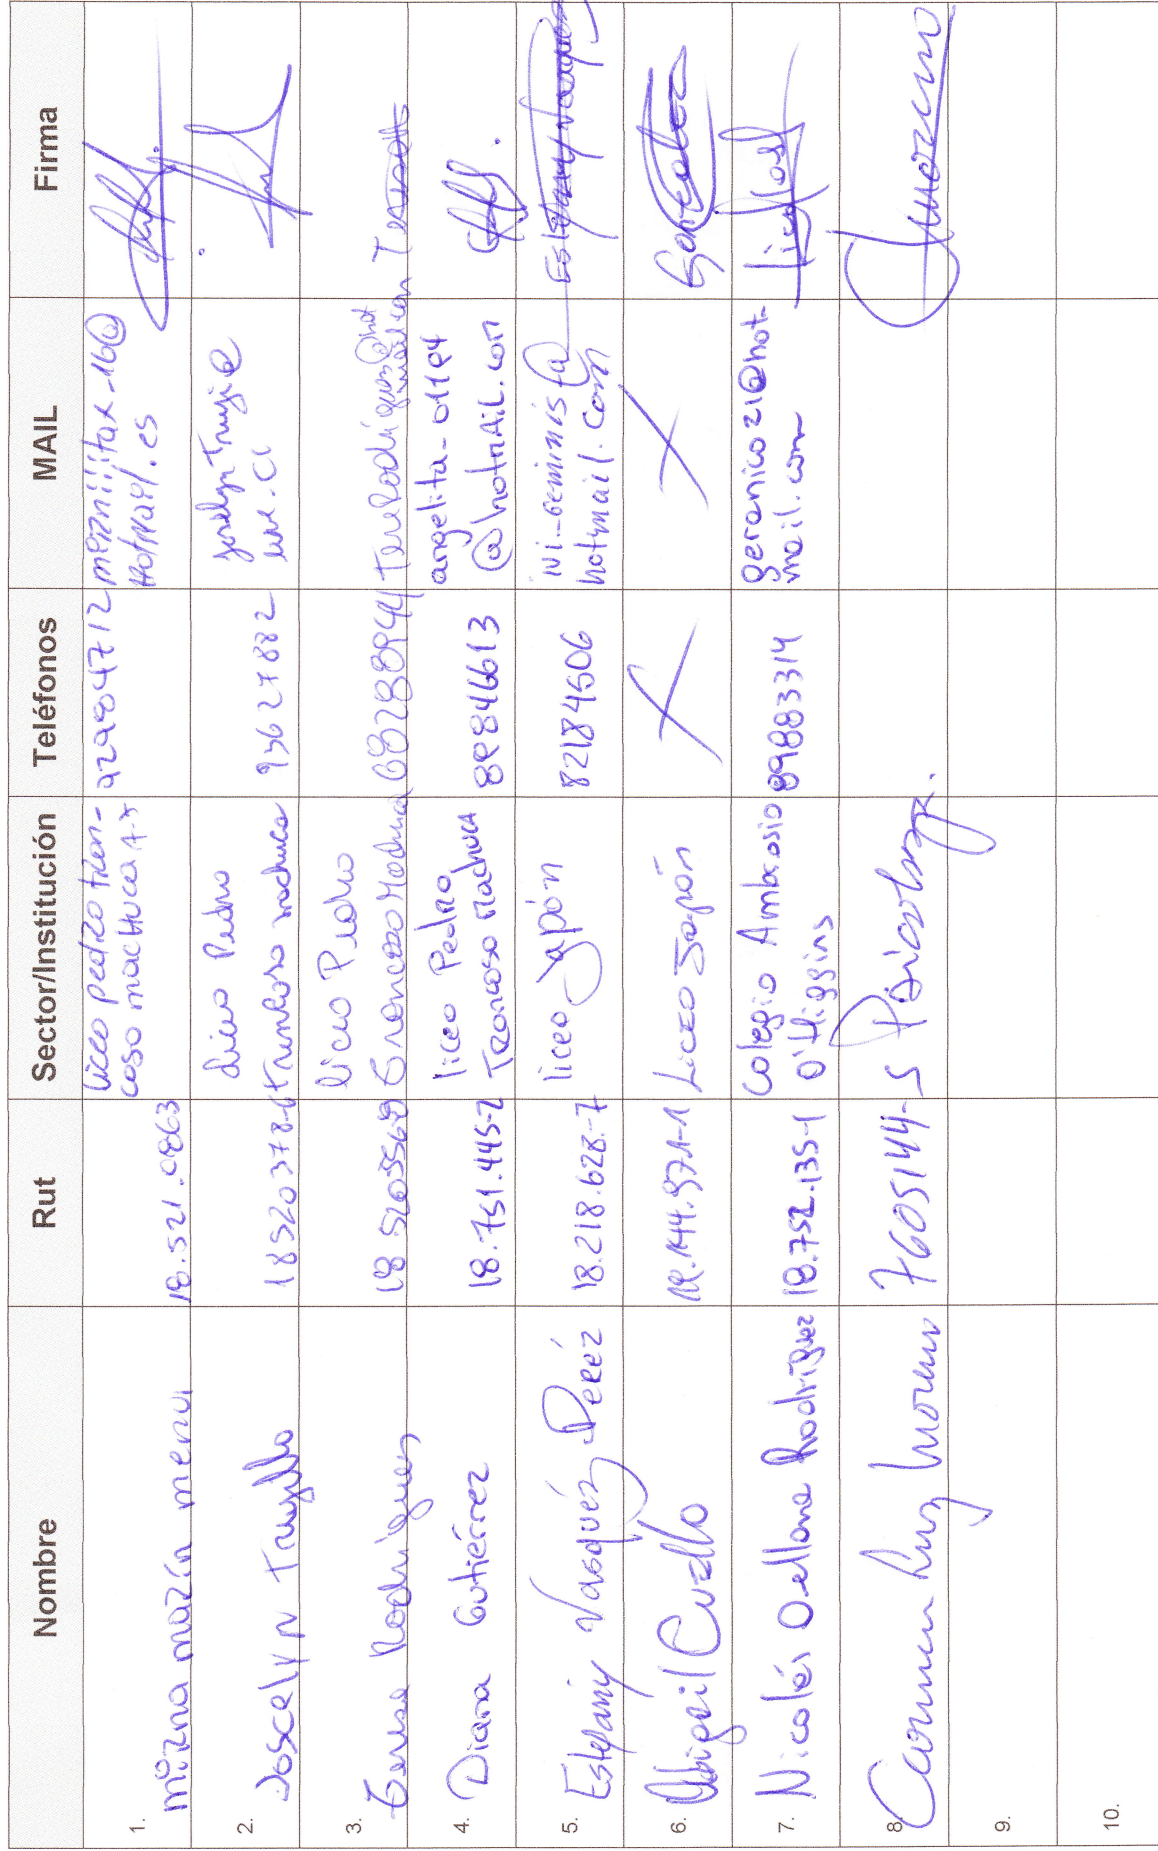 Nombre Rut Sector/Institución Teléfonos MAIL Firma
1. mirna marín 18.521.086-3 liceo pedro tron-
coso machuca A-7 92984712 mirniiitax-16@
Hotmail.es
2. Joscelyn Trujillo 18520378-6 Liceo Pedro
Troncoso machuca 93627882 joselyn.Truji@
live.cl
3. Teresa Rodriguez Liceo Pedro
Troncoso Machuca 68288944
4. Diana Gutiérrez 18.751.445-2 liceo Pedro
Troncoso Machuca 89846613 angelita-01194
@hotmail.com
5. Estefany Vasquéz Peréz 18.218.628-7 liceo Japón 82184506 ivi-geminis
hotmail.com
6. Abigail Cuello Liceo Japón X X González
7. Nicolás Orellana Rodríguez 18.752.135-1 Colegio Ambrosio
O'Higgins 89883314 geranico21@hot-
mail.com
8. Carmen Luz Moreno 7605144-5 Psicologa. Moreno
9.
10.